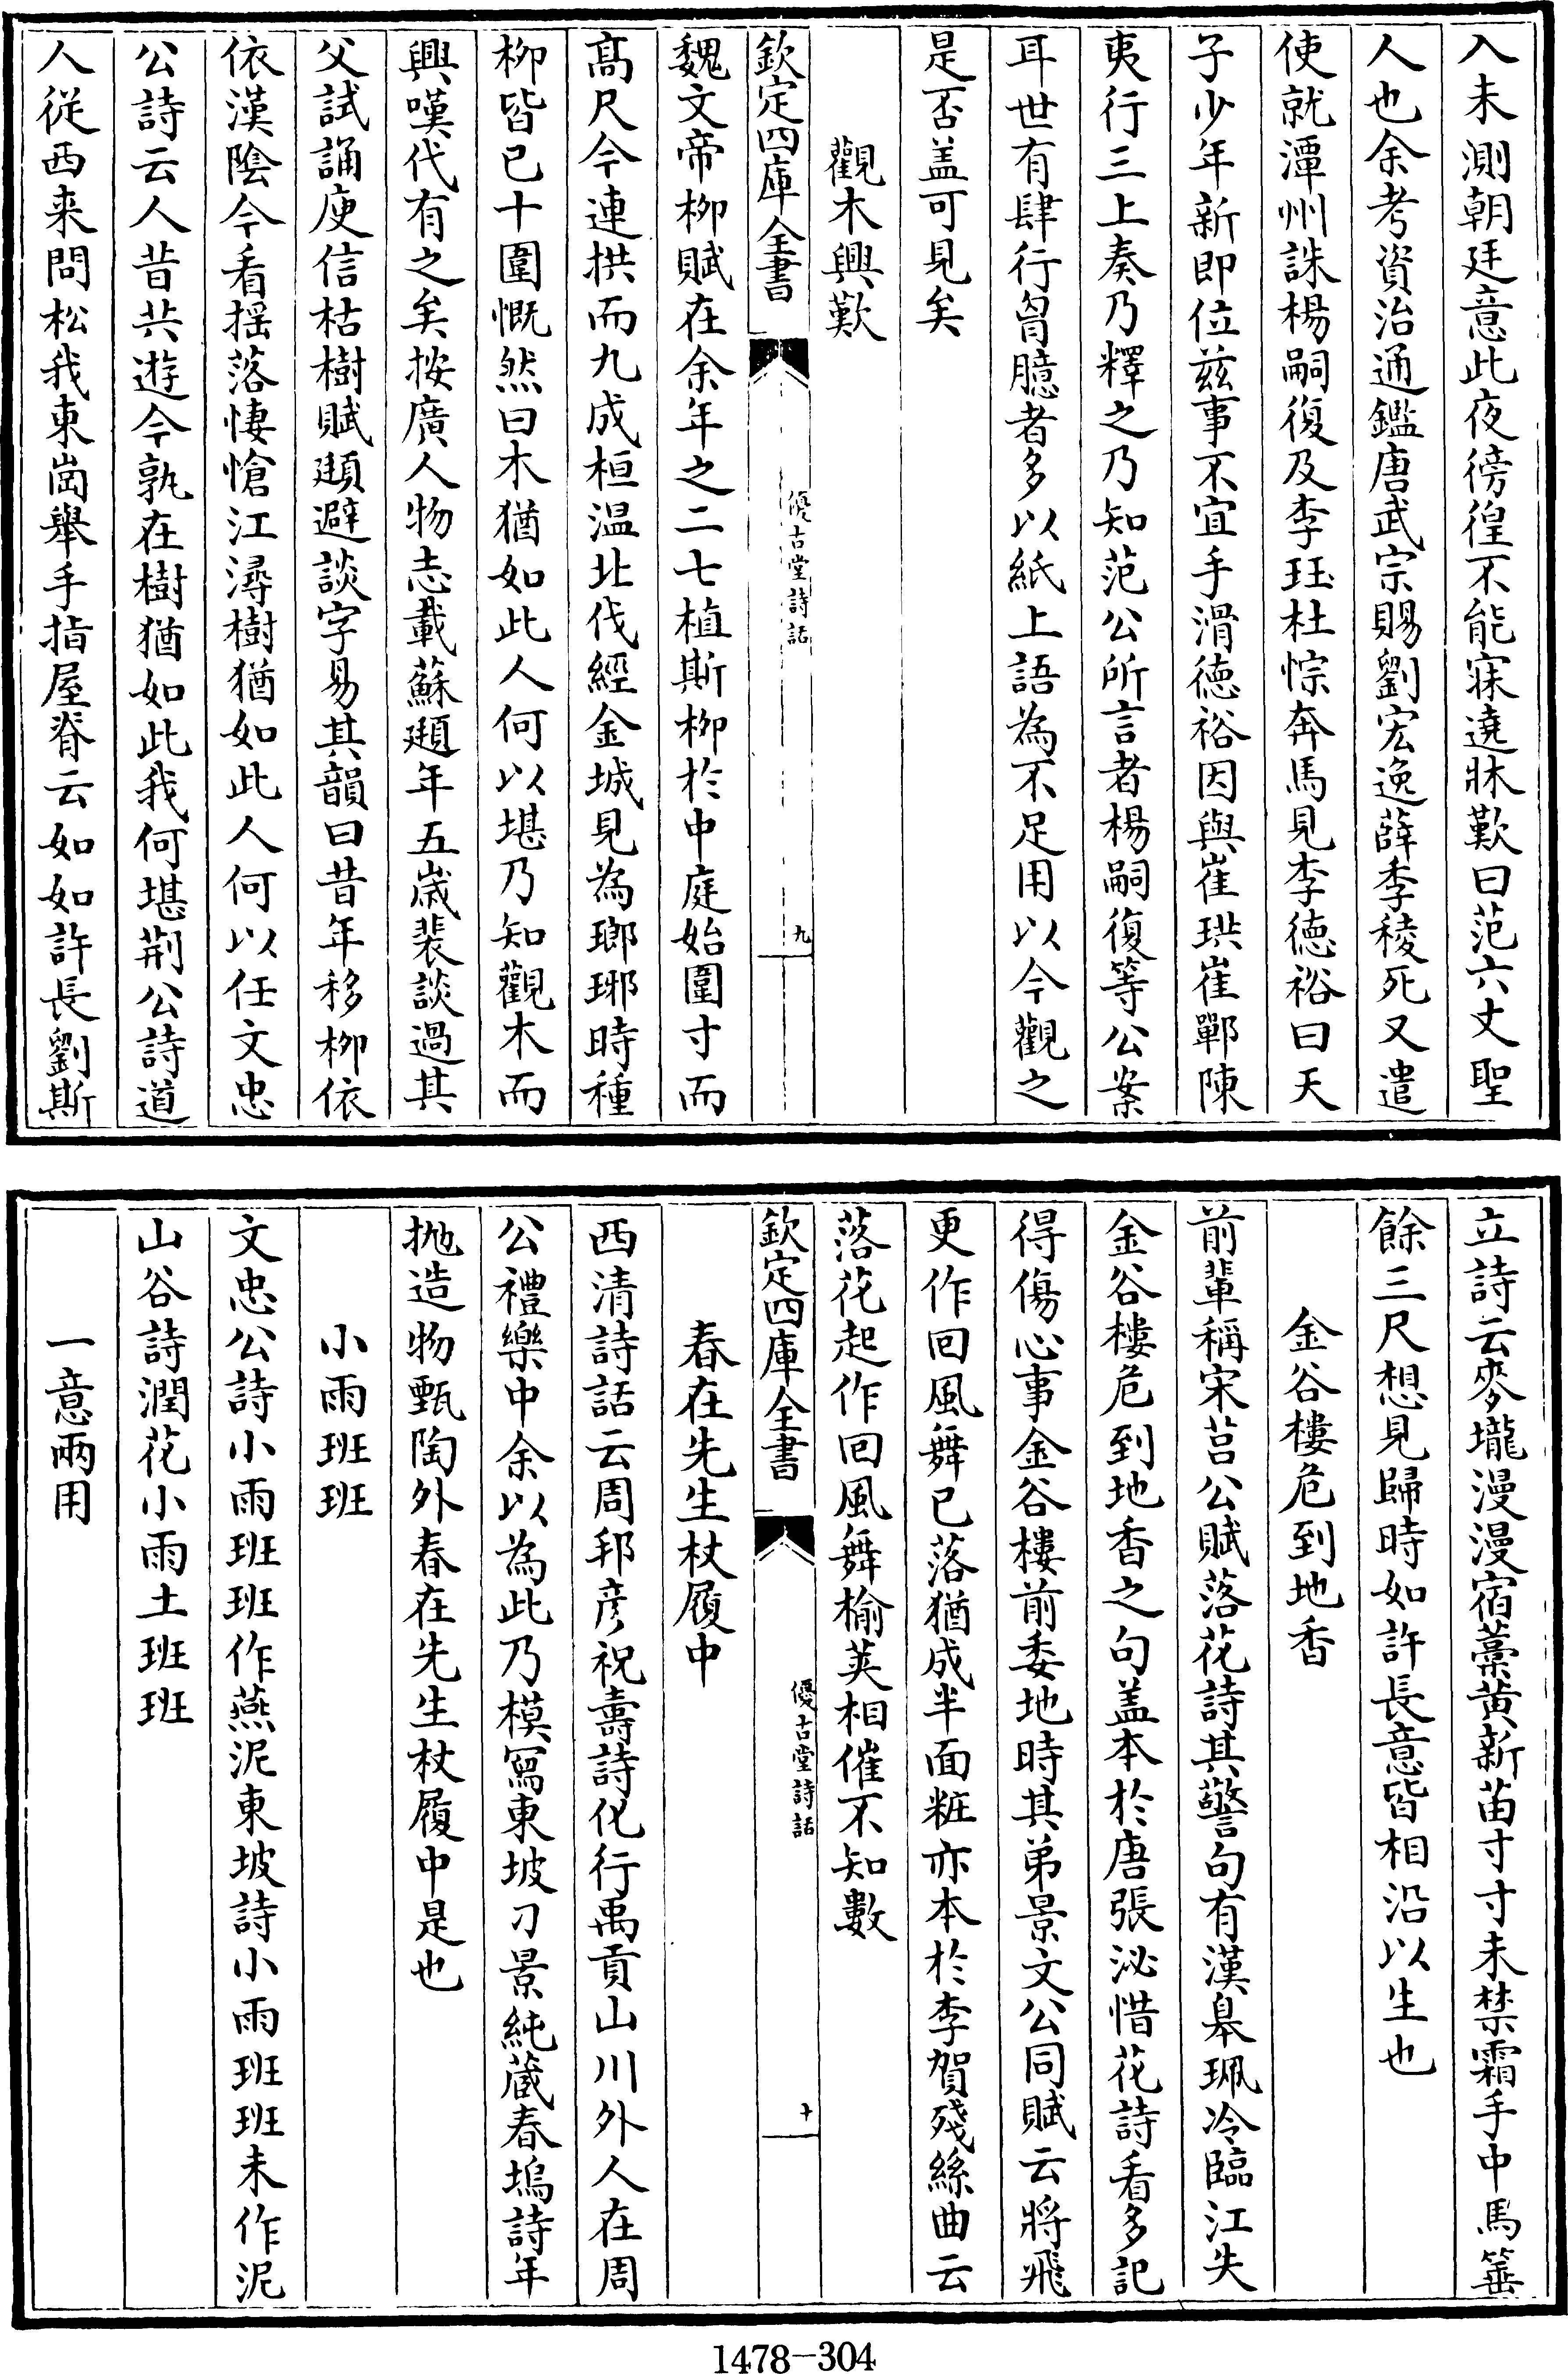 入未測朝廷意此夜徬徨不能寐遶牀歎曰范六丈聖
人也余考資治通鑑唐武宗賜劉宏逸薛季稜死又遣
使就潭州誅楊嗣復及李珏杜悰奔馬見李德裕曰天
子少年新即位茲事不宜手滑德裕因與崔珙崔鄲陳
夷行三上奏乃釋之乃知范公所言者楊嗣復等公案
耳世有肆行胷臆者多以紙上語為不足用以今觀之
是否盖可見矣
觀木興歎
欽定四庫全書
優古堂詩話
九
魏文帝柳賦在余年之二七植斯柳於中庭始圍寸而
髙尺今連拱而九成桓温北伐經金城見為瑯琊時種
柳皆已十圍慨然曰木猶如此人何以堪乃知觀木而
興嘆代有之矣按廣人物志載蘇頲年五歳裴談過其
父試誦庾信枯樹賦頲避談字易其韻曰昔年移柳依
依漢陰今看揺落悽愴江潯樹猶如此人何以任文忠
公詩云人昔共遊今孰在樹猶如此我何堪荆公詩道
人從西来問松我東崗舉手指屋脊云如如許長劉斯
立詩云麥壠漫漫宿藁黄新苗寸寸未禁霜手中馬箠
餘三尺想見歸時如許長意皆相沿以生也
金谷樓危到地香
前輩稱宋莒公賦落花詩其警句有漢臯珮冷臨江失
金谷樓危到地香之句盖本於唐張泌惜花詩看多記
得傷心事金谷樓前委地時其弟景文公同賦云將飛
更作回風舞已落猶成半面粧亦本於李賀殘絲曲云
落花起作回風舞榆莢相催不知數
欽定四庫全書
優古堂詩話
十
春在先生杖履中
西清詩話云周邦彦祝壽詩化行禹貢山川外人在周
公禮樂中余以為此乃模冩東坡刁景純蔵春塢詩年
抛造物甄陶外春在先生杖履中是也
小雨班班
文忠公詩小雨班班作燕泥東坡詩小雨班班未作泥
山谷詩潤花小雨土班班
一意兩用
1478-304